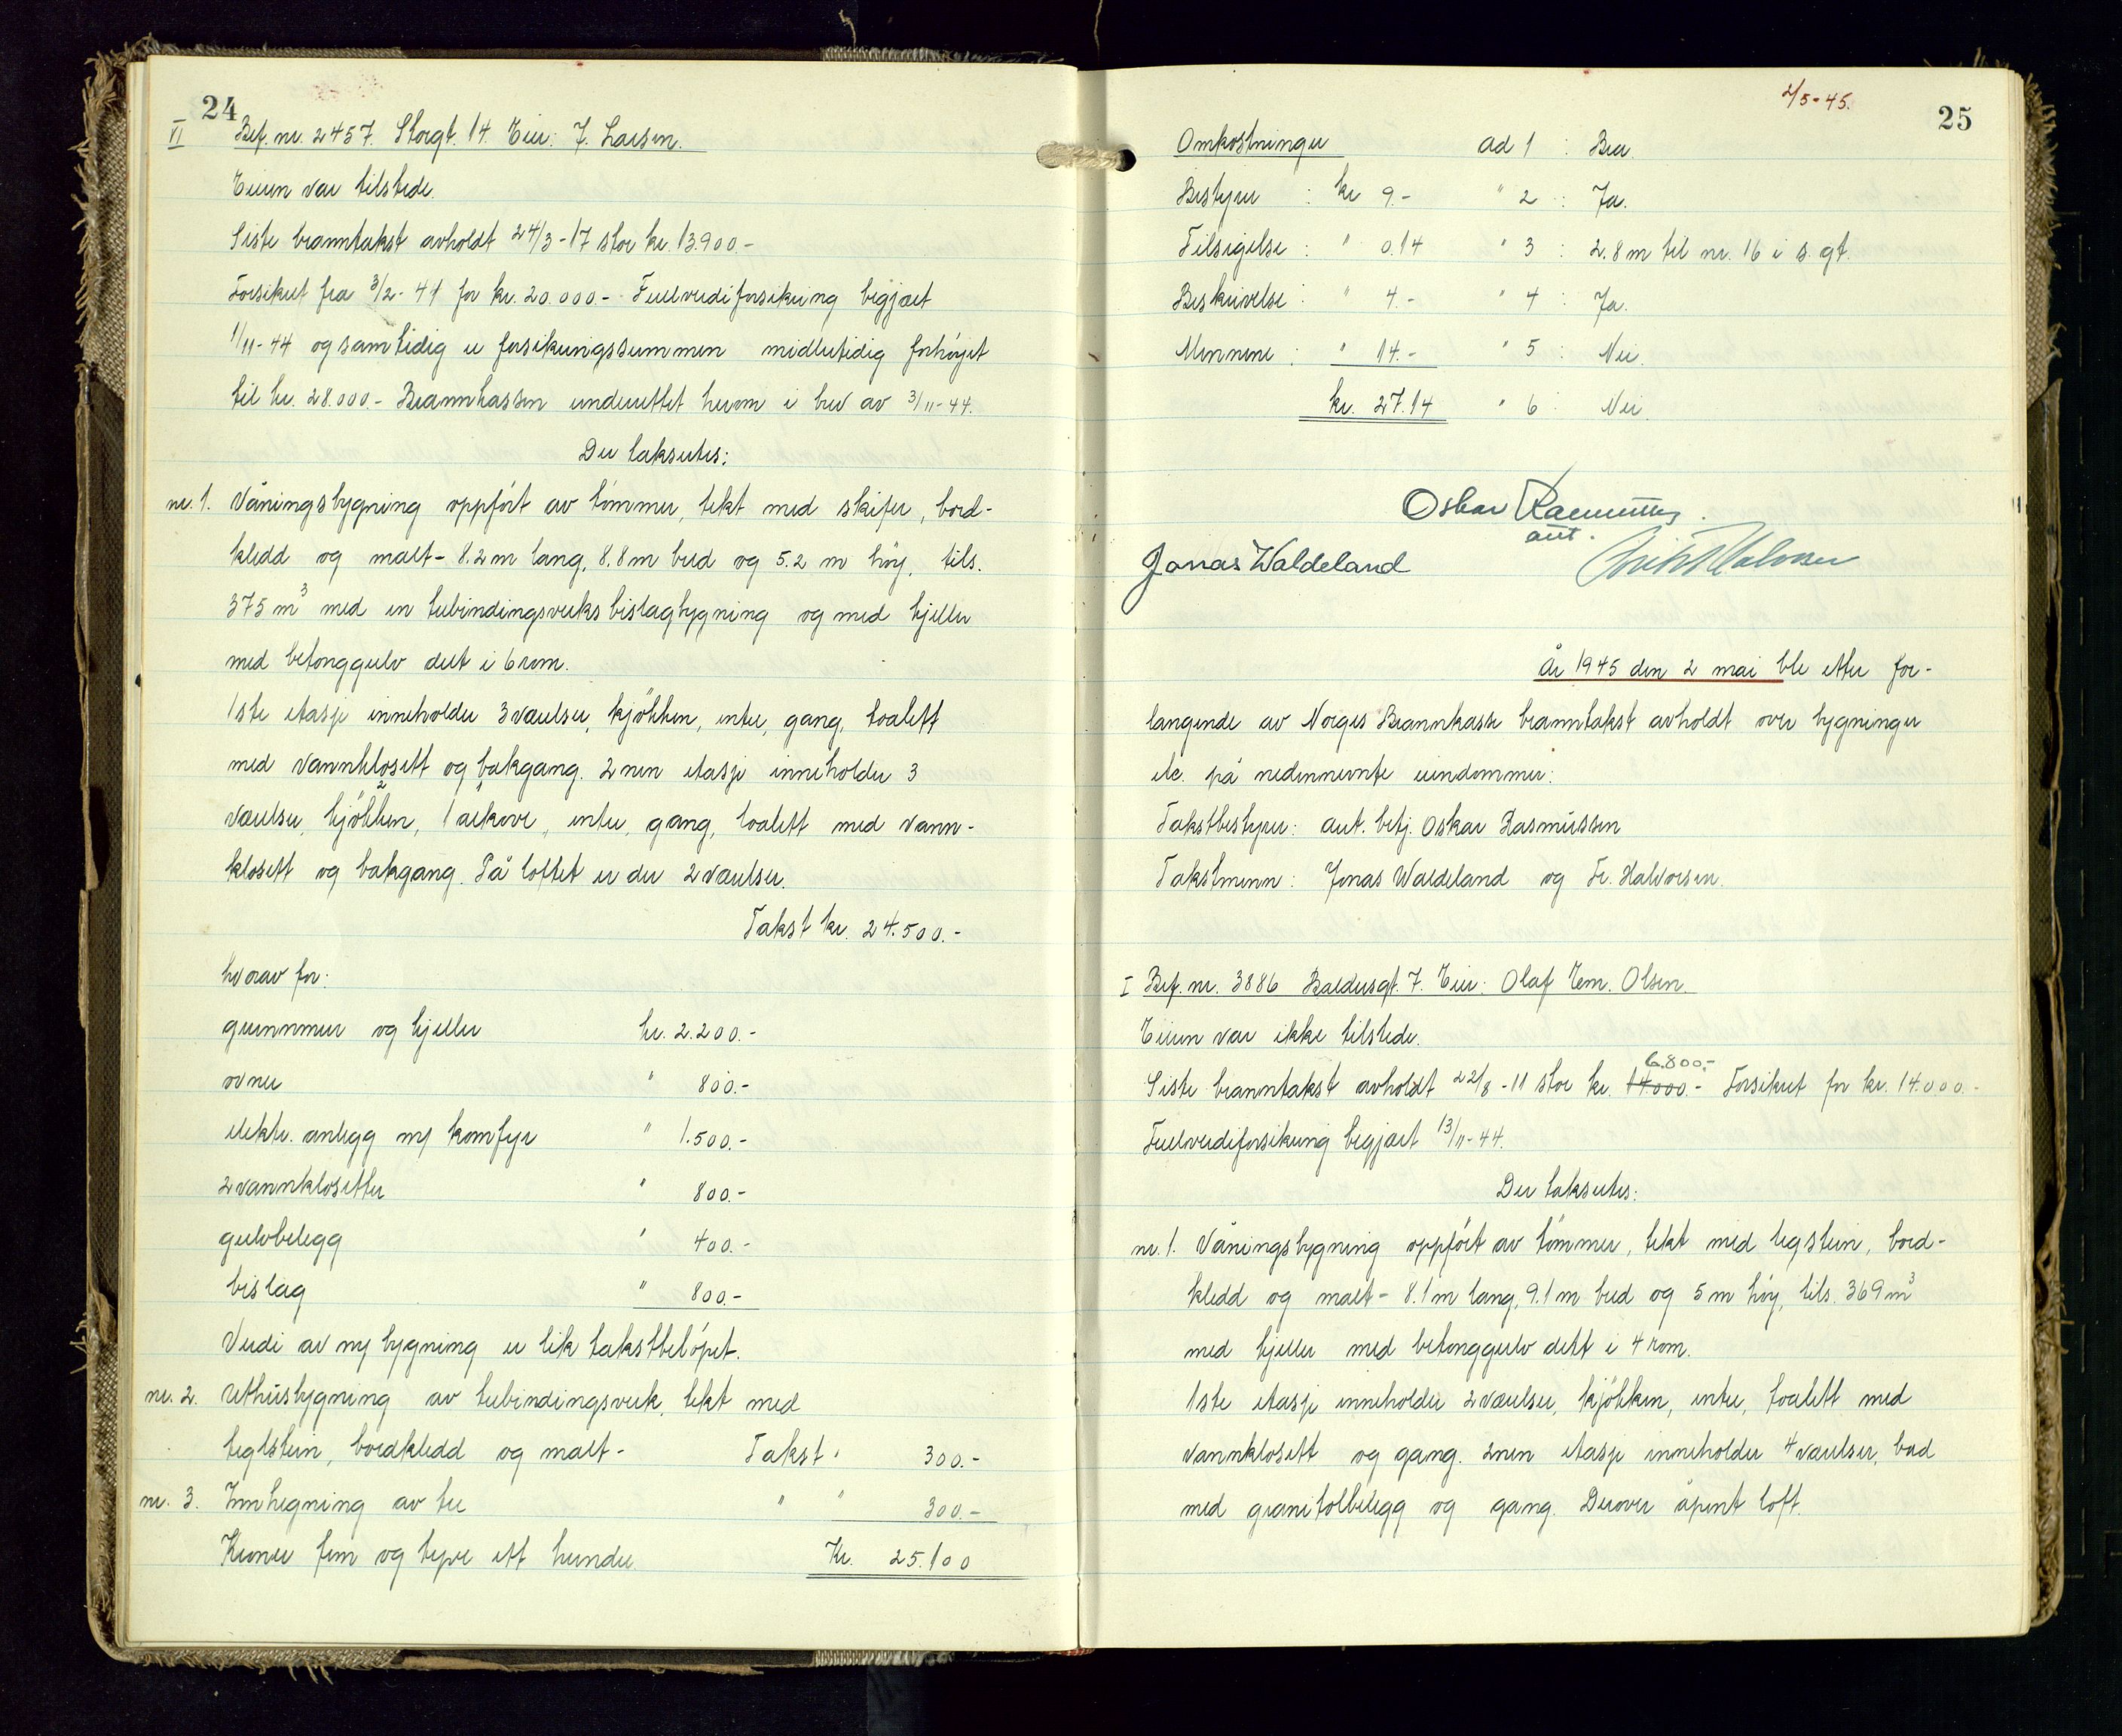 24
VI Bef. nr. 2457. Storgt. 14. Eier: J. Larsen.
Eieren var tilstede.
Siste branntakst avholdt 24/3-17 stor kr. 13.900.-
Forsikret fra 3/2-41 for kr. 20.000.- Fullverdiforsikring begjært
1/11-44 og samtidig er forsikringssummen midlertidig forhøyet
til kr. 28.000.- Brannkassen underrettet herom i brev av 3/11-44.
Der takseres:
nr. 1. Våningsbygning oppført av tømmer, tekt med skifer, bord-
kledd og malt - 8.2 m lang, 8.8 m bred og 5.2 m høy, tils.
375 m³ med en utbindingsverks bislagbygning og med kjeller
med betonggulv delt i 6 rom.
1ste etasje inneholder 3 værelser, kjøkken, entre, gang, toalett
med vannklosett og bakgang. 2nen etasje inneholder 3
værelser, 2 kjøkken, 1 alkove, entre, gang, toalett med vann-
klosett og bakgang. På loftet er der 2 værelser.
Takst kr. 24.500.-
hvorav for:
grunnmur og kjeller kr. 2.200.-
ovner " 800.-
elektr. anlegg m/ komfyr " 1.500.-
2 vannklosetter " 800.-
gulvbelegg " 400.-
bislag " 800.-
Verdi av ny bygning er lik takstbeløpet.
nr. 2. Uthusbygning av utbindingsverk, tekt med
teglstein, bordkledd og malt - Takst " 300.-
nr. 3. Innhegning av tre " " 300.-
Kroner fem og tyve ett hundre. Kr. 25.100
2/5-45.
25
Omkostninger ad 1 : Bra.
Bestyrer : kr 9.- " 2 : Ja.
Tilsigelse : " 0.14 " 3 : 2.8 m til nr. 16 i s. gt.
Beskrivelse : " 4.- " 4 : Ja.
Mennene : " 14.- " 5 : Nei.
kr. 27.14 " 6 : Nei.
Oskar Rasmussen
aut.
Jonas Waldeland Halvorsen
År 1945 den 2 mai ble etter for-
langende av Norges Brannkasse branntakst avholdt over bygninger
etc. på nedennevnte eiendommer:
Takstbestyrer: aut. betj. Oskar Rasmussen
Takstmenn: Jonas Waldeland og Fr. Halvorsen.
I Bef. nr. 3886 Baldersgt. 7. Eier: Olaf Tem. Olsen.
Eieren var ikke tilstede.
6.800.-
Siste branntakst avholdt 22/8-11 stor kr. 14.000.- Forsikret for kr. 14.000.-
Fullverdiforsikring begjært 13/11-44.
Der takseres:
nr. 1. Våningsbygning oppført av tømmer, tekt med teglstein, bord-
kledd og malt - 8.1 m lang, 9.1 m bred og 5 m høy, tils. 369 m³
med kjeller med betonggulv delt i 4 rom.
1ste etasje inneholder 2 værelser, kjøkken, entre, toalett med
vannklosett og gang. 2nen etasje inneholder 4 værelser, bad
med granitolbelegg og gang. Derover åpent loft.